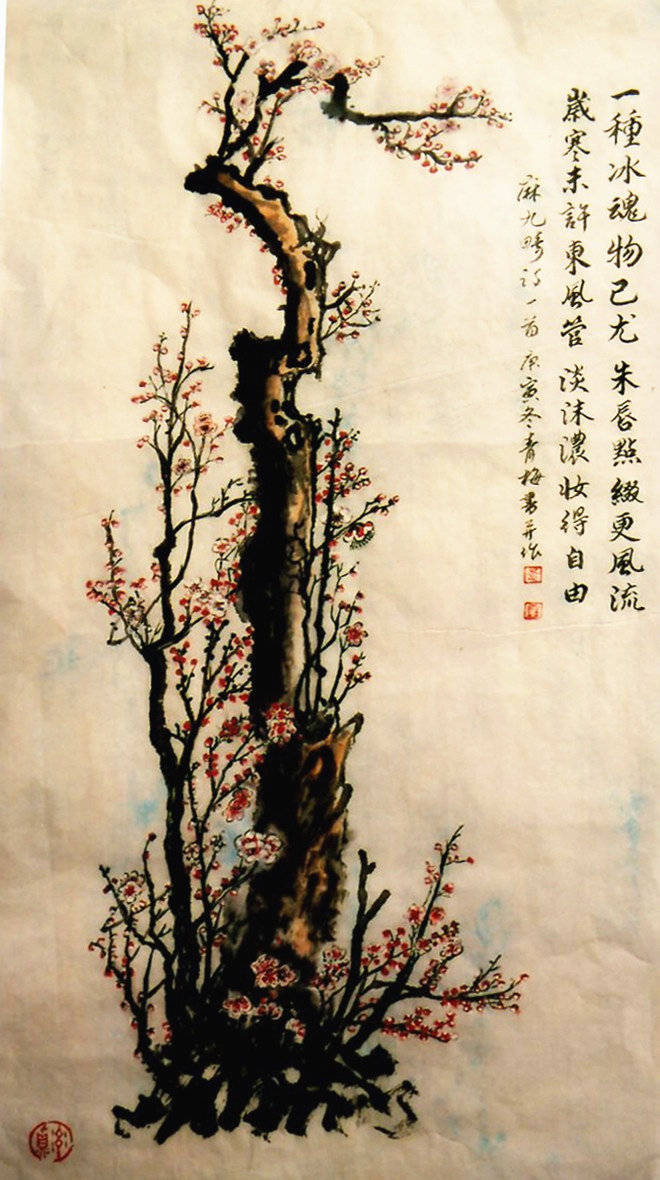 一種冰魂物已尤朱唇點綴更風流
歲寒未許東風管淡沫濃妝得自由
麻九疇诗一首庚寅冬青梅書并作